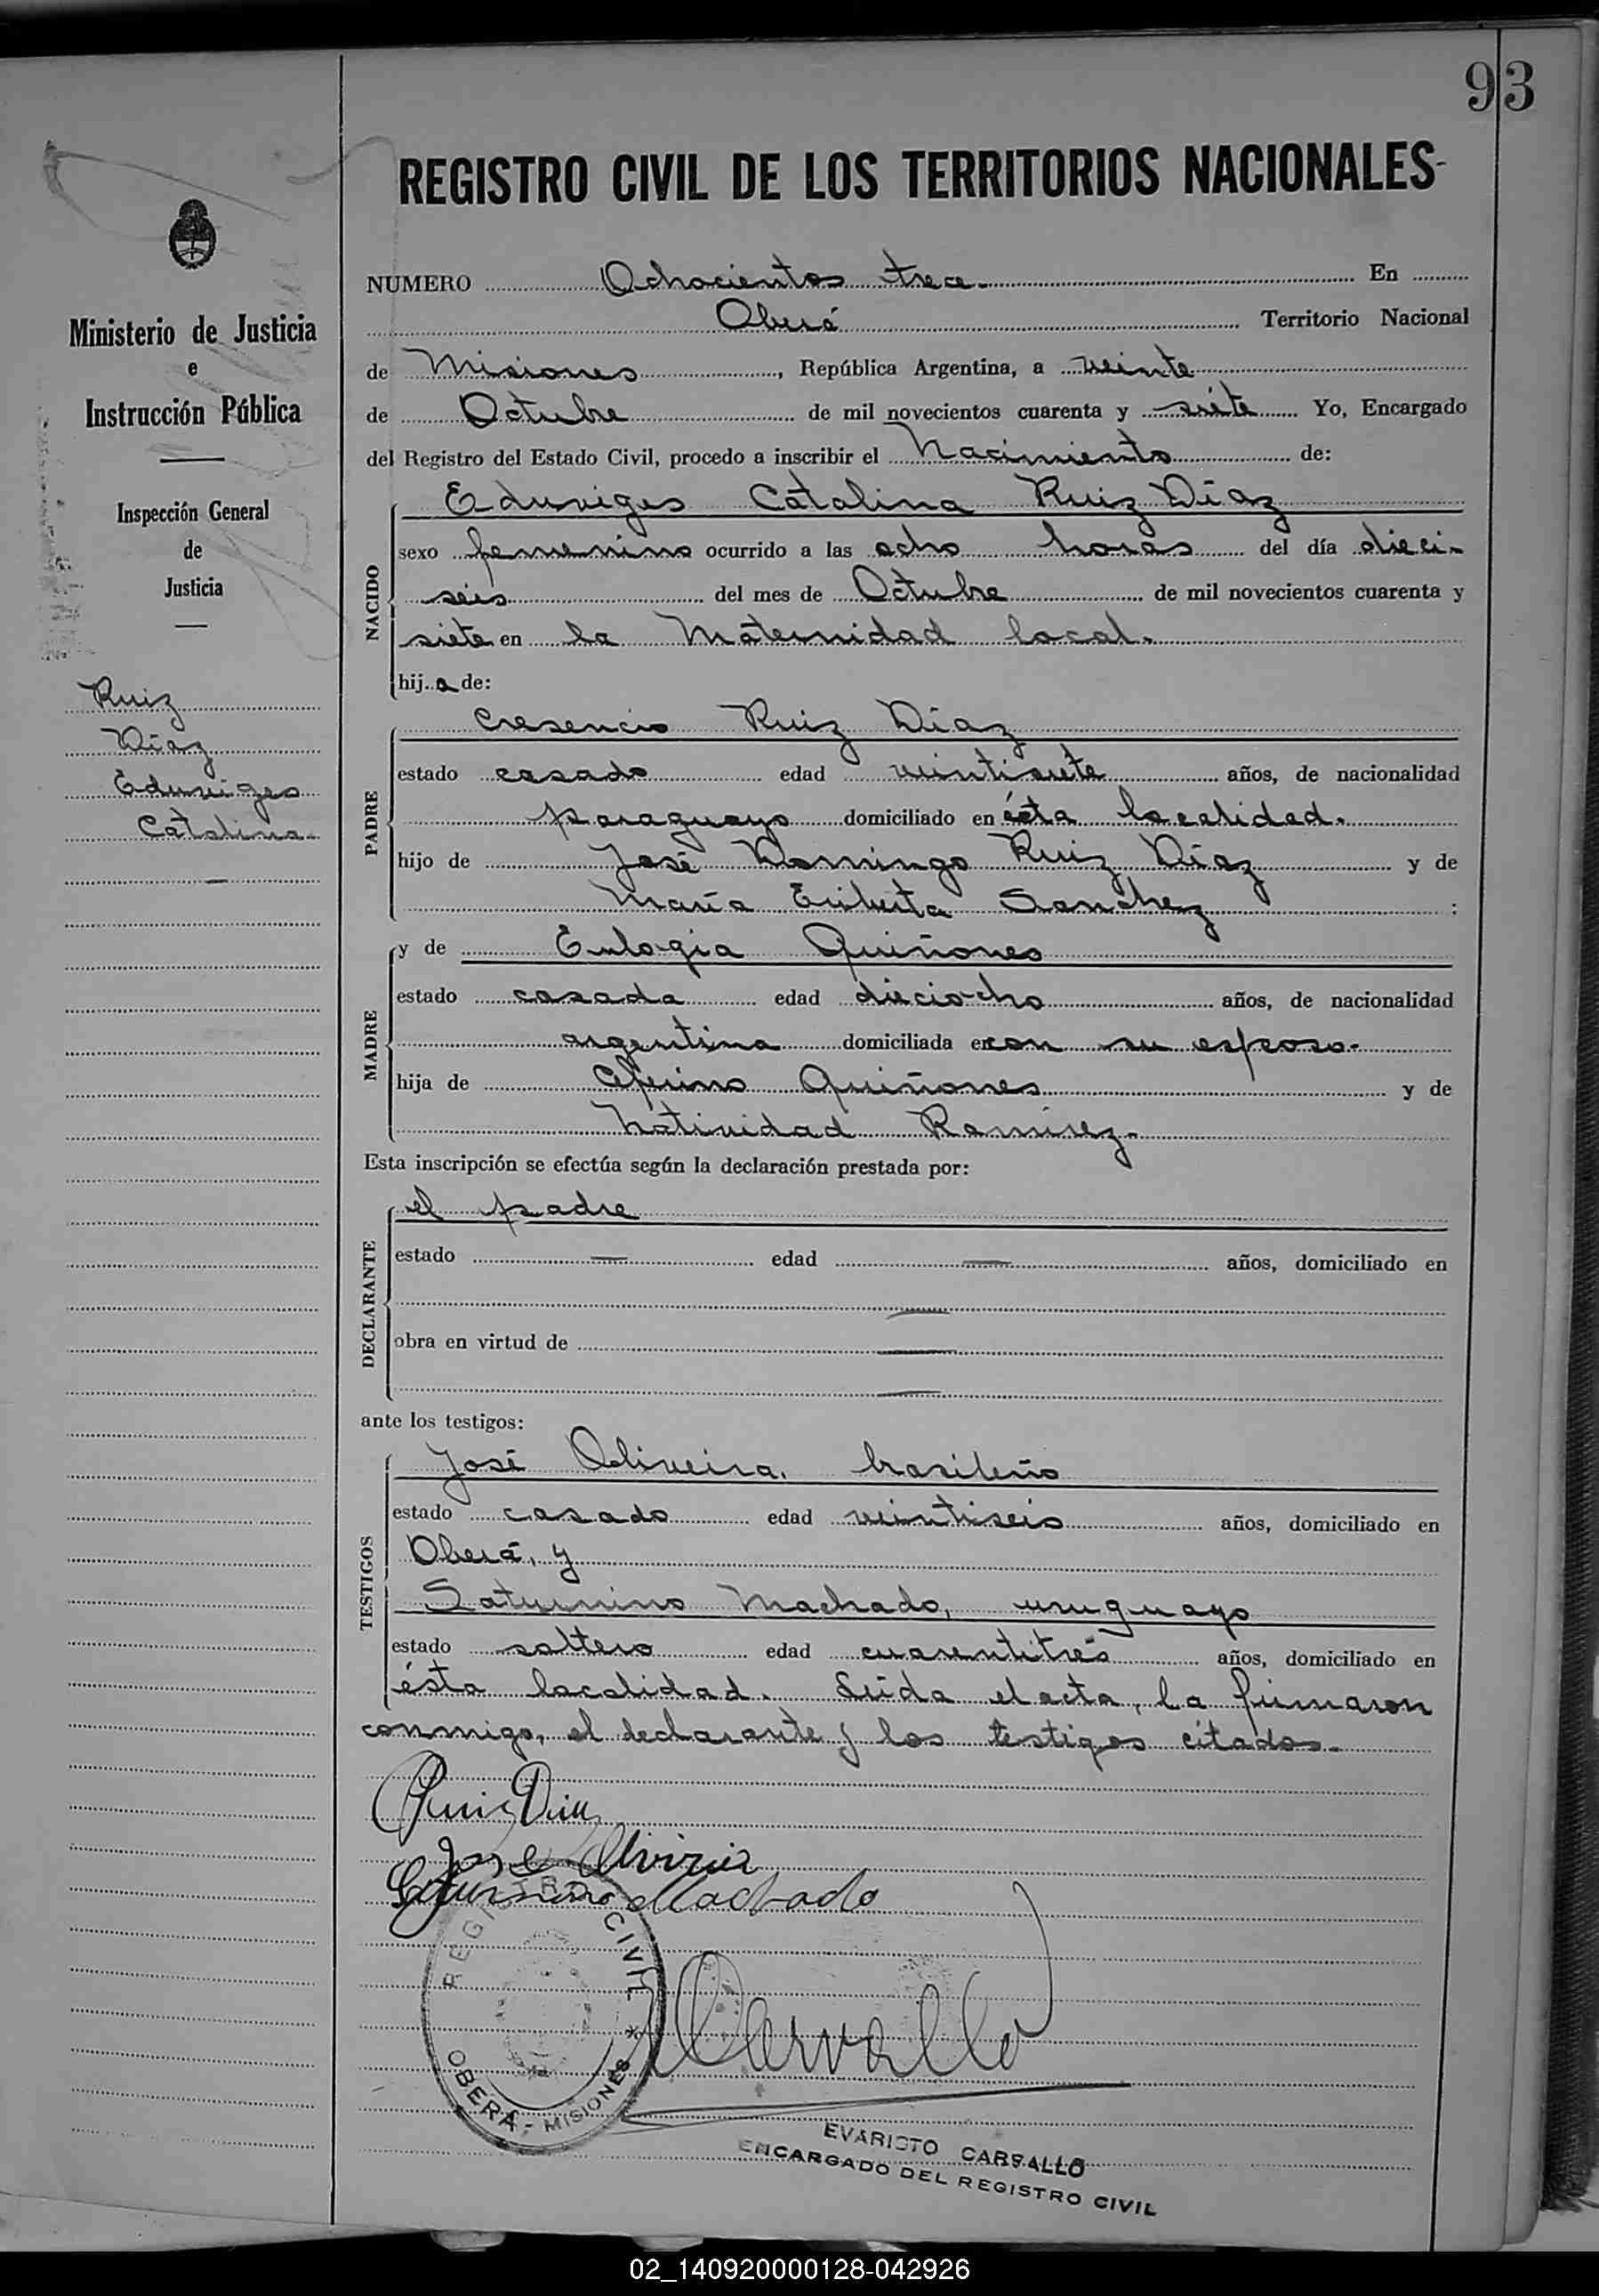 93
REGISTRO CIVIL DE LOS TERRITORIOS NACIONALES
Ministerio de Justicia
e
Instrucción Pública
Inspección General
de
Justicia
Ruiz
Díaz
Eduviges
Catalina.
NUMERO Ochocientos trece. En
Oberá Territorio Nacional
de Misiones, República Argentina, a veinte
de Octubre de mil novecientos cuarenta y siete Yo, Encargado
del Registro del Estado Civil, procedo a inscribir el Nacimiento de:
NACIDO
Eduviges Catalina Ruiz Díaz
sexo femenino ocurrido a las ocho horas del día dieci-
seis del mes de Octubre de mil novecientos cuarenta y
siete en la Maternidad local.
hija de:
PADRE
Cresencio Ruiz Díaz
estado casado edad veintisiete años, de nacionalidad
paraguayo domiciliado en ésta localidad.
hijo de José Domingo Ruiz Díaz y de
María Eriberta Sanchez :
MADRE
y de Eulogia Quiñones
estado casada edad dieciocho años, de nacionalidad
argentina domiciliada en con su esposo.
hija de Ceferino Quiñones y de
Natividad Ramirez.
Esta inscripción se efectúa según la declaración prestada por:
DECLARANTE
el padre
estado — edad — años, domiciliado en
—
obra en virtud de —
—
ante los testigos:
TESTIGOS
José Oliveira, brasileño
estado casado edad veintiseis años, domiciliado en
Oberá, y
Saturnino Machado, uruguayo
estado soltero edad cuarentitrés años, domiciliado en
ésta localidad. Leida el acta, la firmaron
conmigo, el declarante y los testigos citados.
CRuiz Diaz
Jose Oliveira
Saturnino Machado
REGISTRO CIVIL
OBERÁ - MISIONES
Carvallo
EVARISTO CARVALLO
ENCARGADO DEL REGISTRO CIVIL
02_140920000128-042926